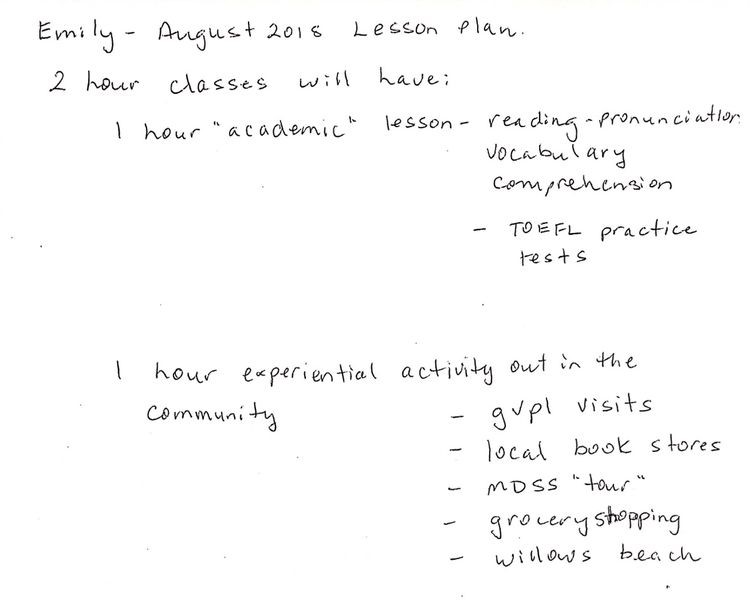 Emily - August 2018 Lesson Plan.
2 hour classes will have:
1 hour "academic" lesson - reading - pronunciation
vocabulary
comprehension
- TOEFL practice
tests
1 hour experiential activity out in the
community - gvpl visits
- local book stores
- MDSS "tour"
- grocery shopping
- willows beach